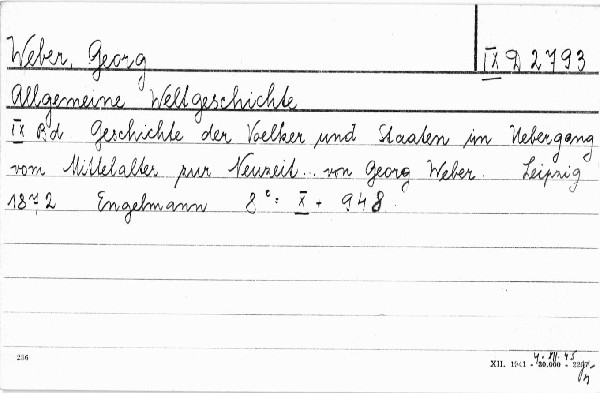 Weber, Georg IX D 2793
Allgemeine Weltgeschichte
IX Bd Geschichte der Voelker und Staaten im Uebergang
vom Mittelalter zur Neuzeit... von Georg Weber. Leipzig
1872 Engelmann 8°: X + 948.
286 XII. 1941 - 30.000 -